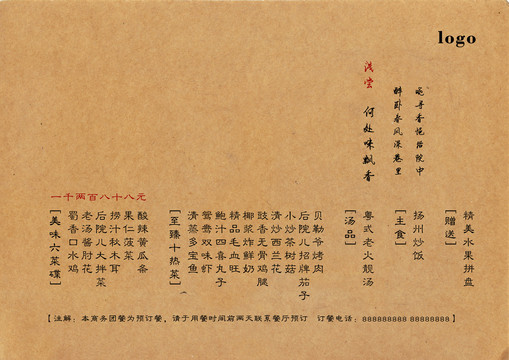 logo
浅尝 何处味飘香
醉卧春风深巷里
晓寻香悦后院中
一千两百八十八元
【美味六菜碟】
蜀香口水鸡
老汤酱肘花
后院儿大拌菜
捞汁秋木耳
果仁菠菜
酸辣黄瓜条
【至臻十热菜】
清蒸多宝鱼
鸳鸯双味虾
鲍汁四喜丸子
精品毛血旺
椰浆炸鲜奶
豉香无骨鸡腿
清炒西兰花
小炒茶树菇
后院儿招牌茄子
贝勒爷烤肉
【汤品】
粤式老火靓汤
【主食】
扬州炒饭
【赠送】
精美水果拼盘
【注解：本商务团餐为预订餐，请于用餐时间前两天联系餐厅预订 订餐电话：888888888 88888888】